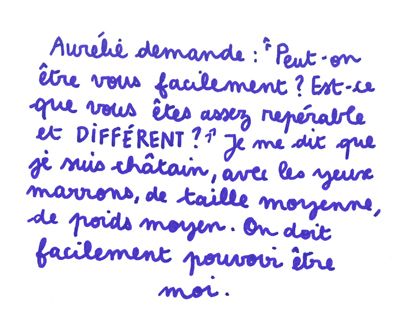 Aurélie demande : "Peut-on
être vous facilement ? Est-ce
que vous êtes assez repérable
et DIFFÉRENT ?" Je me dit que
je suis châtain, avec les yeux
marrons, de taille moyenne,
de poids moyen. On doit
facilement pouvoir être
moi.